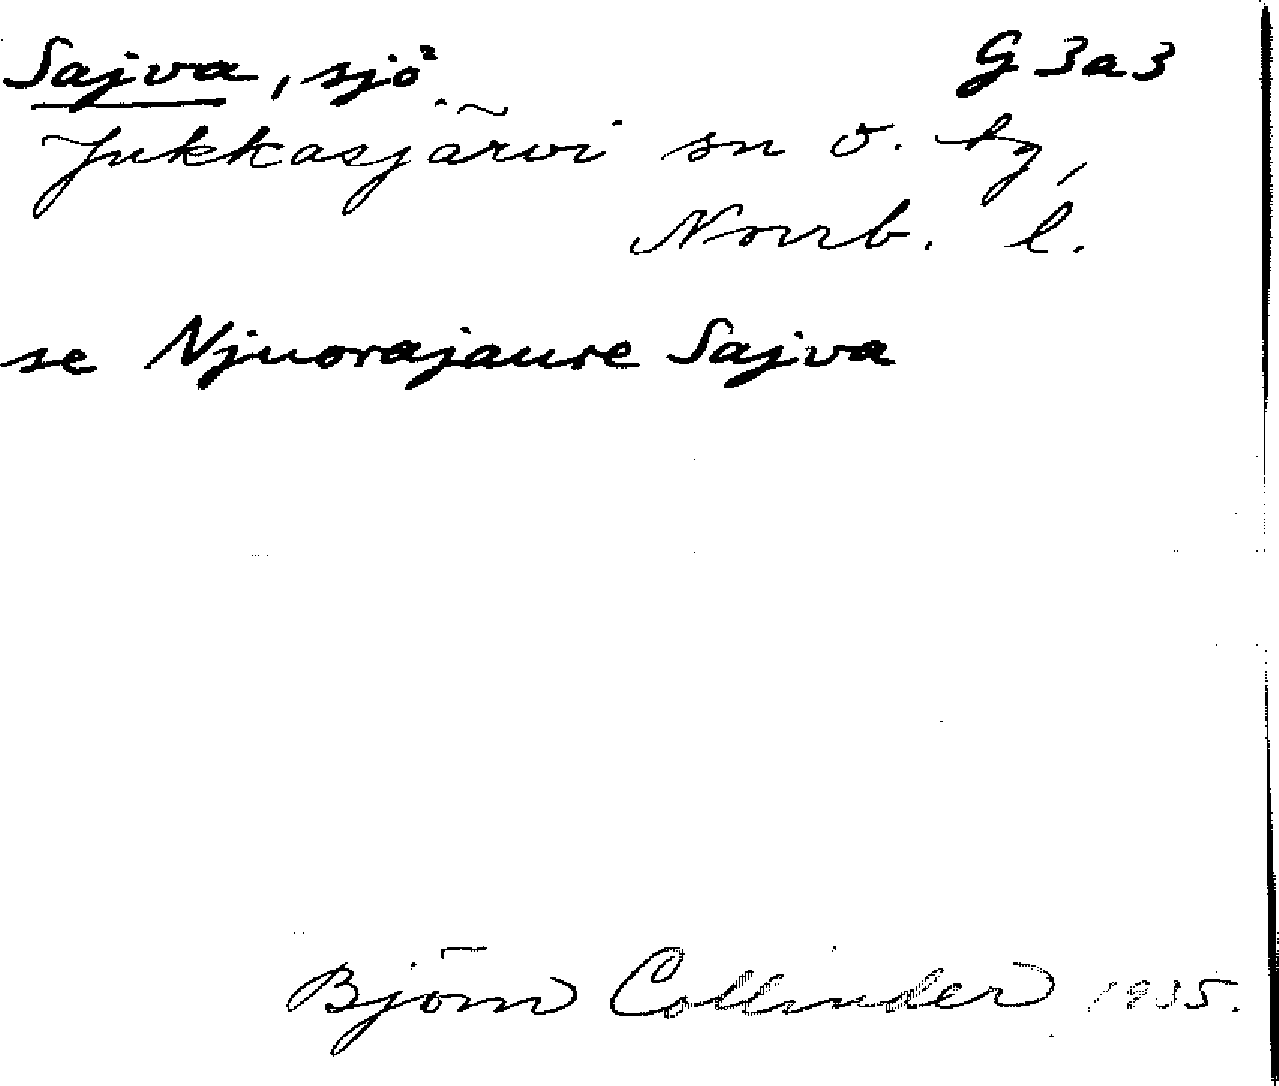 Sajva, sjö G 3a3
Jukkasjärvi sn o. tg,
Norrb. l.
se Njuorajaure Sajva
Björn Collinder 1935.